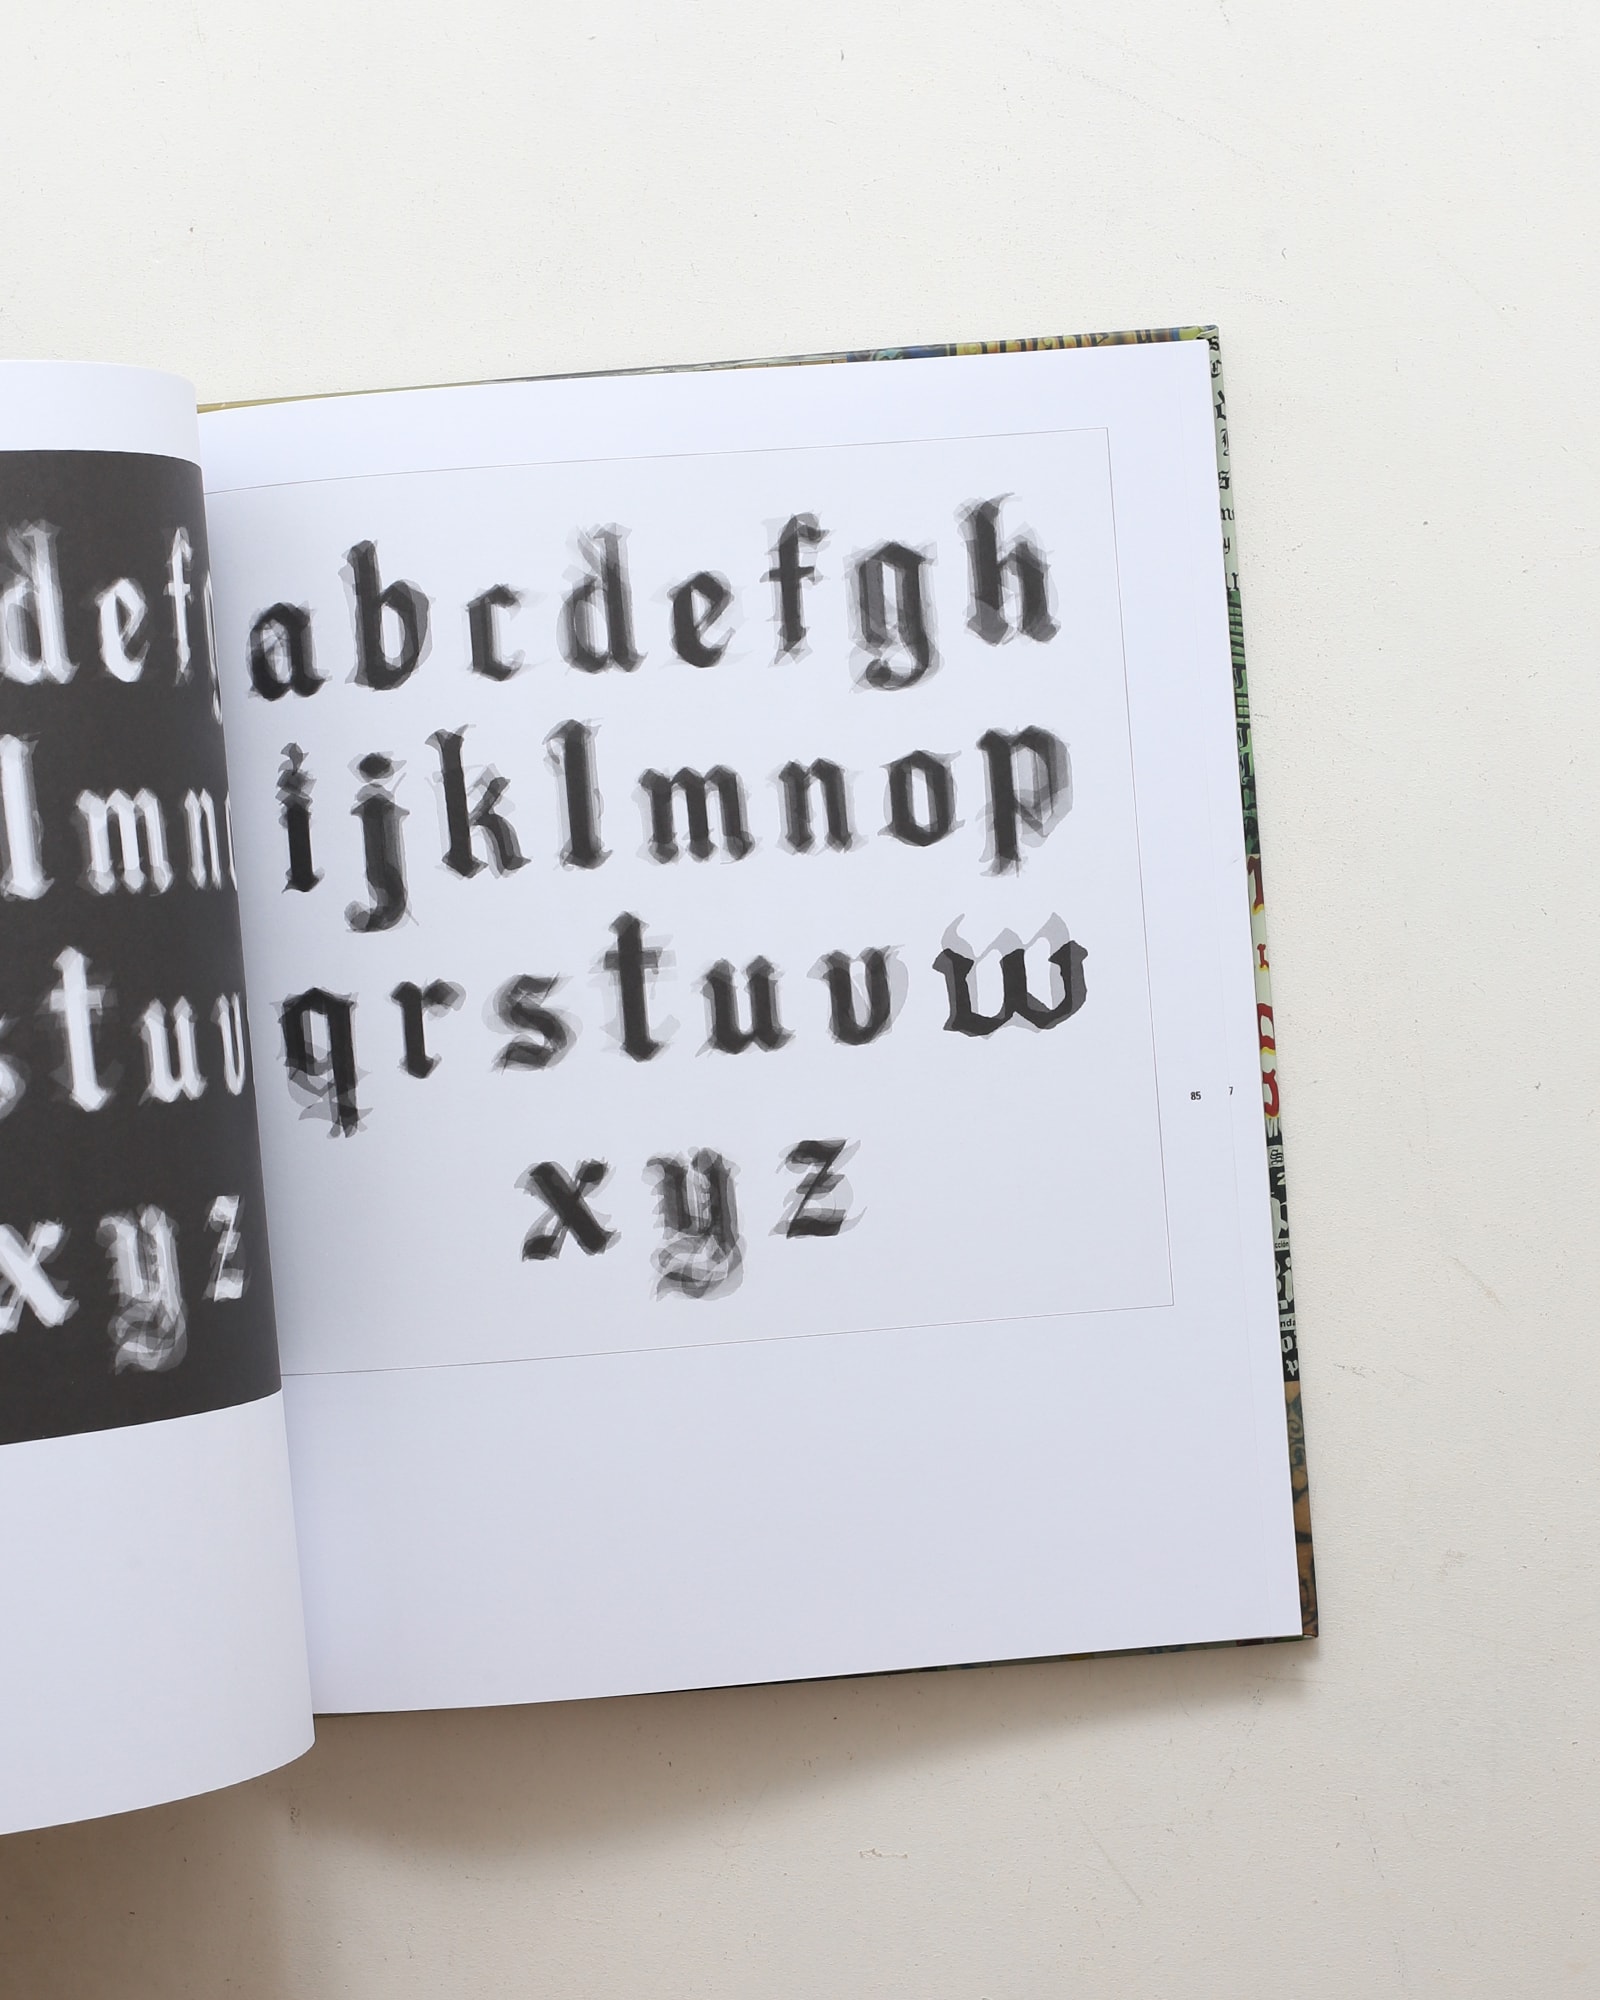 d e f
l m n
s t u v
x y z
a b c d e f g h
i j k l m n o p
q r s t u v w
x y z
85
7